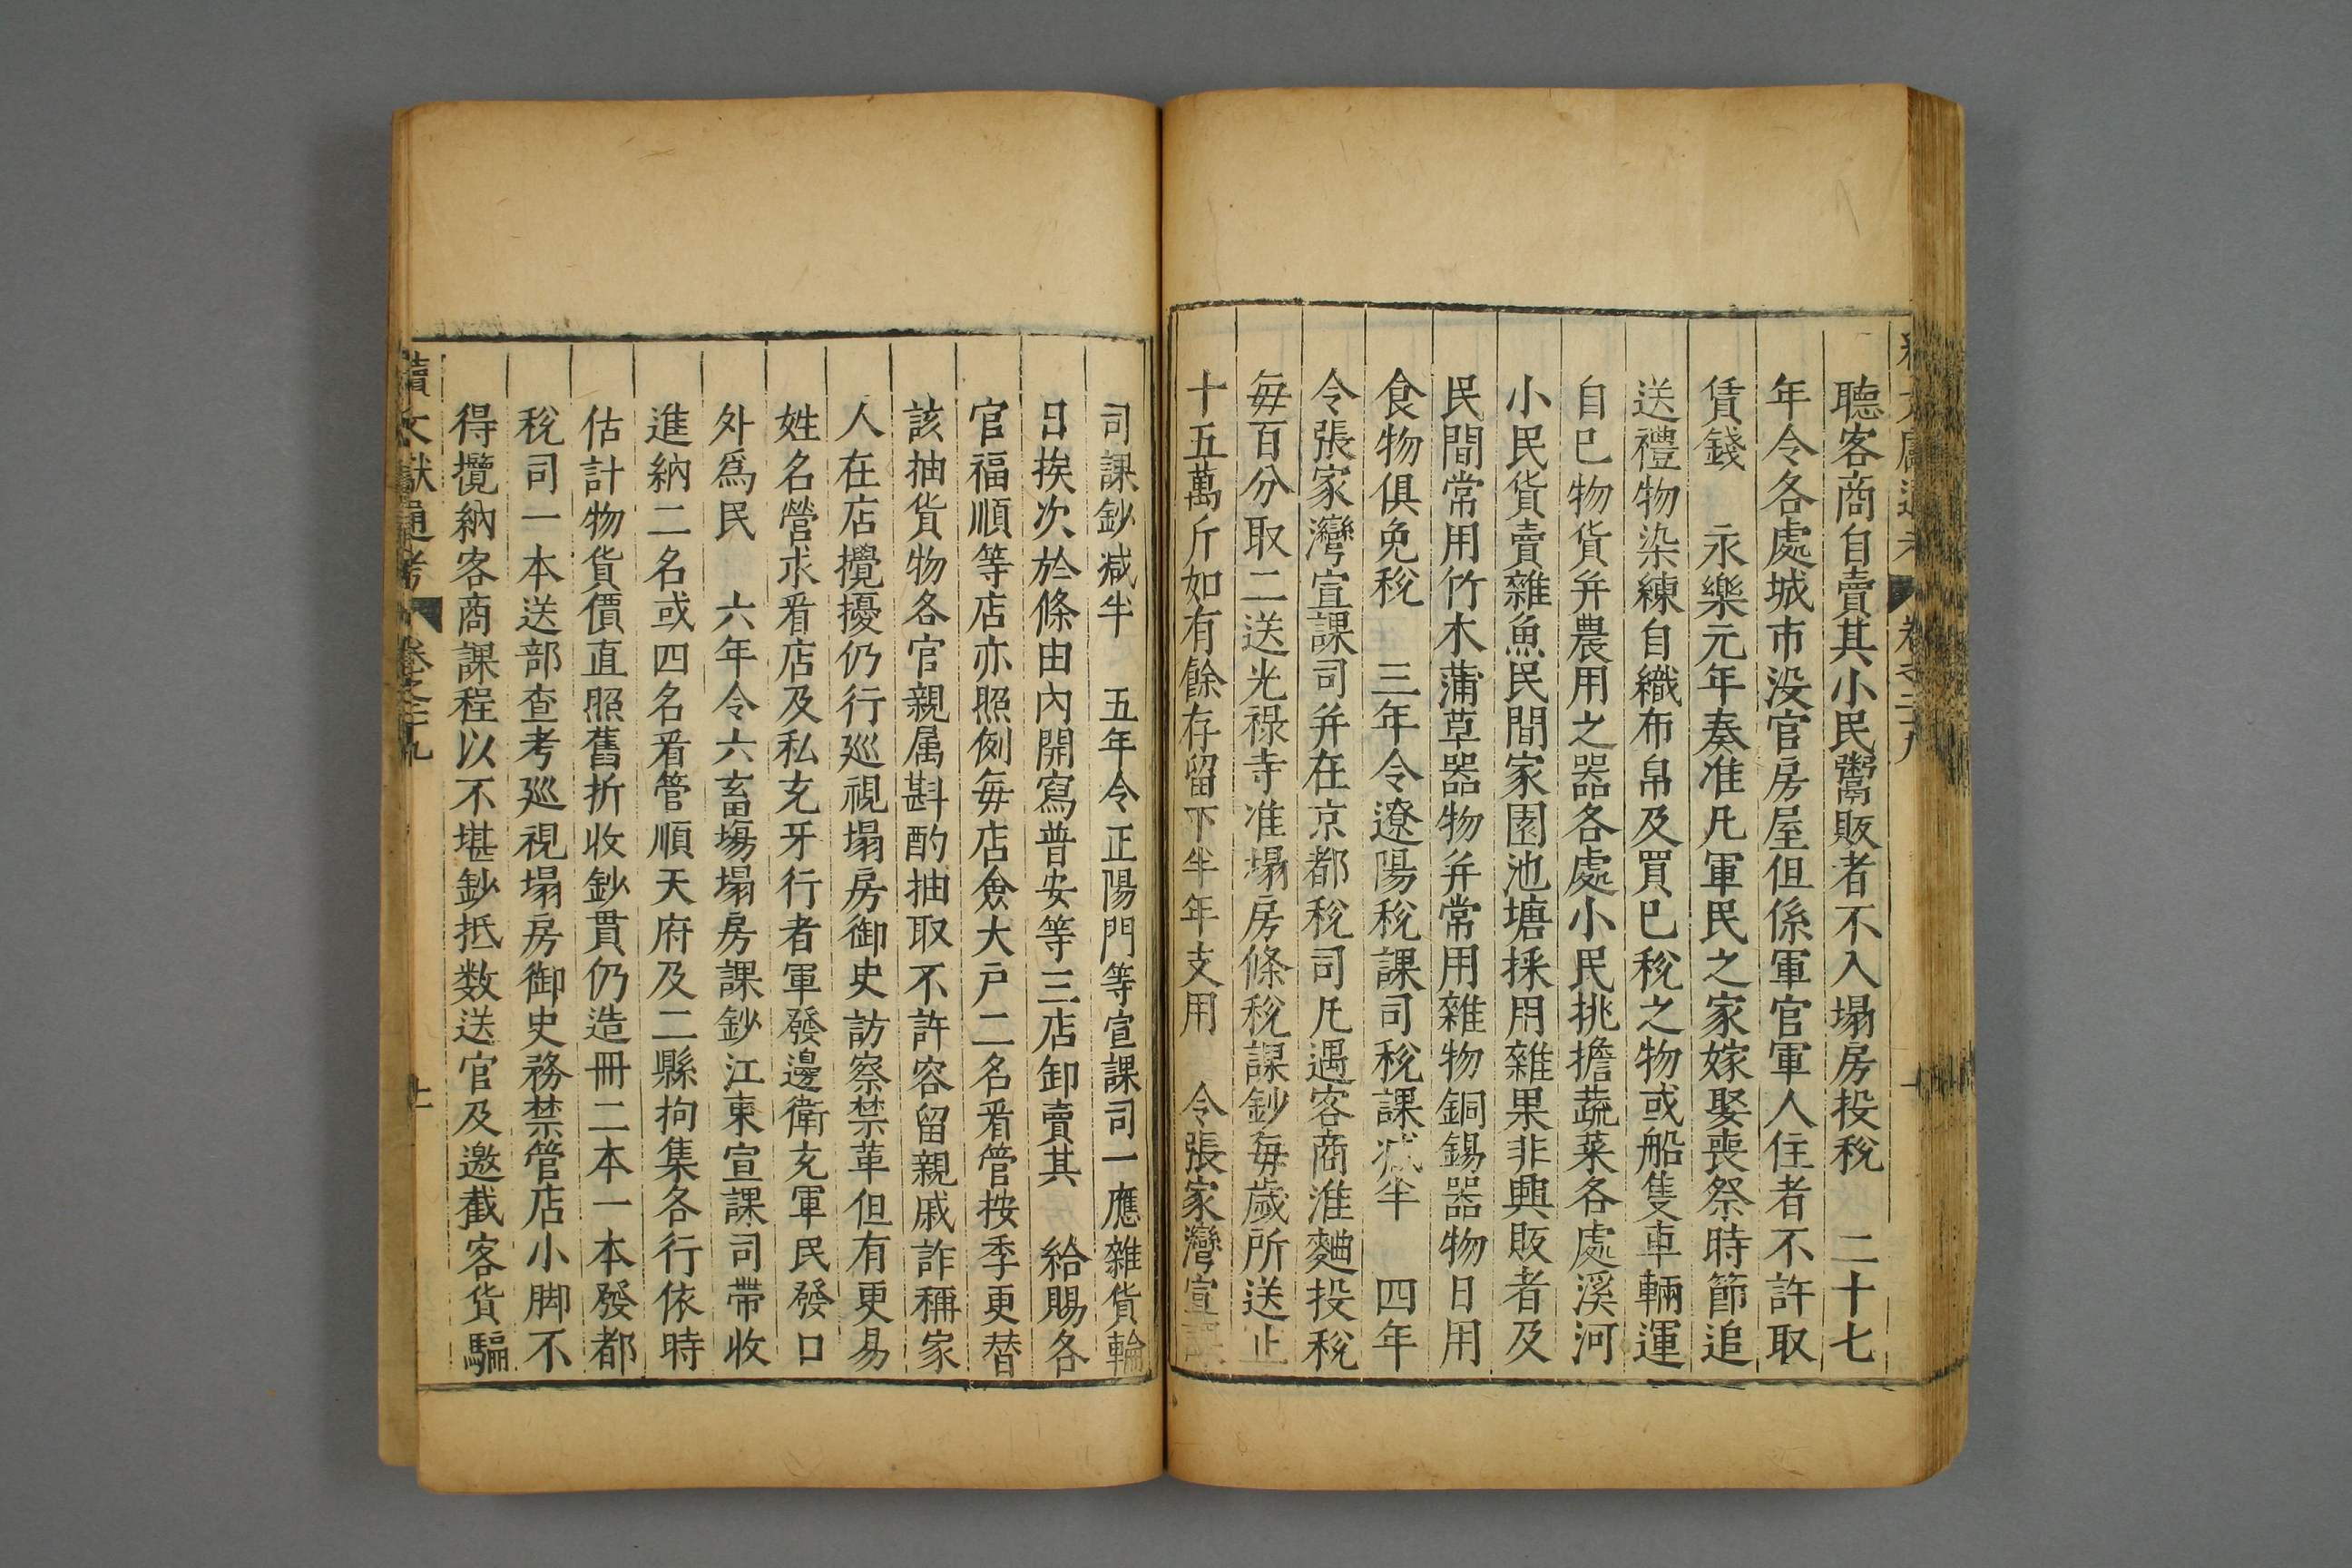 聽客商自賣其小民鬻販者不入塌房投稅 二十七
年令各處城市没官房屋但係軍官軍人住者不許取
賃錢 永樂元年奏准凡軍民之家嫁娶喪祭時節追
送禮物染練自織布帛及買已稅之物或船隻車輛運
自已物貨并農用之器各處小民挑擔蔬菜各處溪河
小民貨賣雜魚民間家園池塘採用雜果非興販者及
民間常用竹木蒲草器物并常用雜物銅錫器物日用
食物俱免稅 三年令遼陽稅課司稅課減半 四年
令張家灣宣課司并在京都稅司凡遇客商淮麯投稅
每百分取二送光禄寺准塌房條稅課鈔每歲所送止
十五萬斤如有餘存留下半年支用 令張家灣宣課
司課鈔減半 五年令正陽門等宣課司一應雜貨輪
日挨次於條由內開寫普安等三店卸賣其 給賜各
官福順等店亦照例每店僉大戶二名看管按季更替
該抽貨物各官親属斟酌抽取不許容留親戚詐稱家
人在店攪擾仍行廵視塌房御史訪察禁革但有更易
姓名營求看店及私充牙行者軍發邊衛充軍民發口
外爲民 六年令六畜塲塌房課鈔江東宣課司帶收
進納二名或四名看管順天府及二縣拘集各行依時
估計物貨價直照舊折收鈔貫仍造冊二本一本發都
稅司一本送部查考廵視塌房御史務禁管店小脚不
得攬納客商課程以不堪鈔抵数送官及邀截客貨騙
續文獻通考 卷之二十九